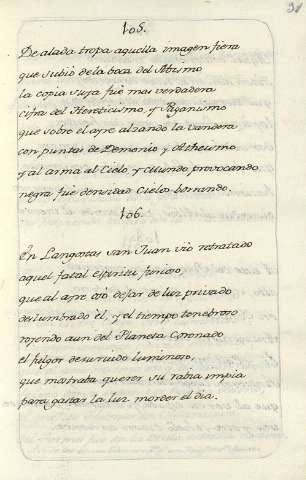 31
105.
De alada tropa aquella imagen fiera
que subió de la boca del Abismo
la copia suya fue mas verdadera
cifra del Hereticismo, y Paganismo
que sobre el ayre alzando la vandera
con puntas de Demonio y Atheismo
y al arma al Cielo, y Mundo provocando
negra fue densidad Cielos borrando.
106.
En Langostas san Juan vio retratado
aquel fatal espiritu furioso,
que al ayre osó dejar de luz privado
deslumbrado el, y el tiempo tenebroso
royendo aun del Planeta Coronado
el fulgor de luminoso,
que mostraba querer su rabia impia
para gastar la luz morder el dia.